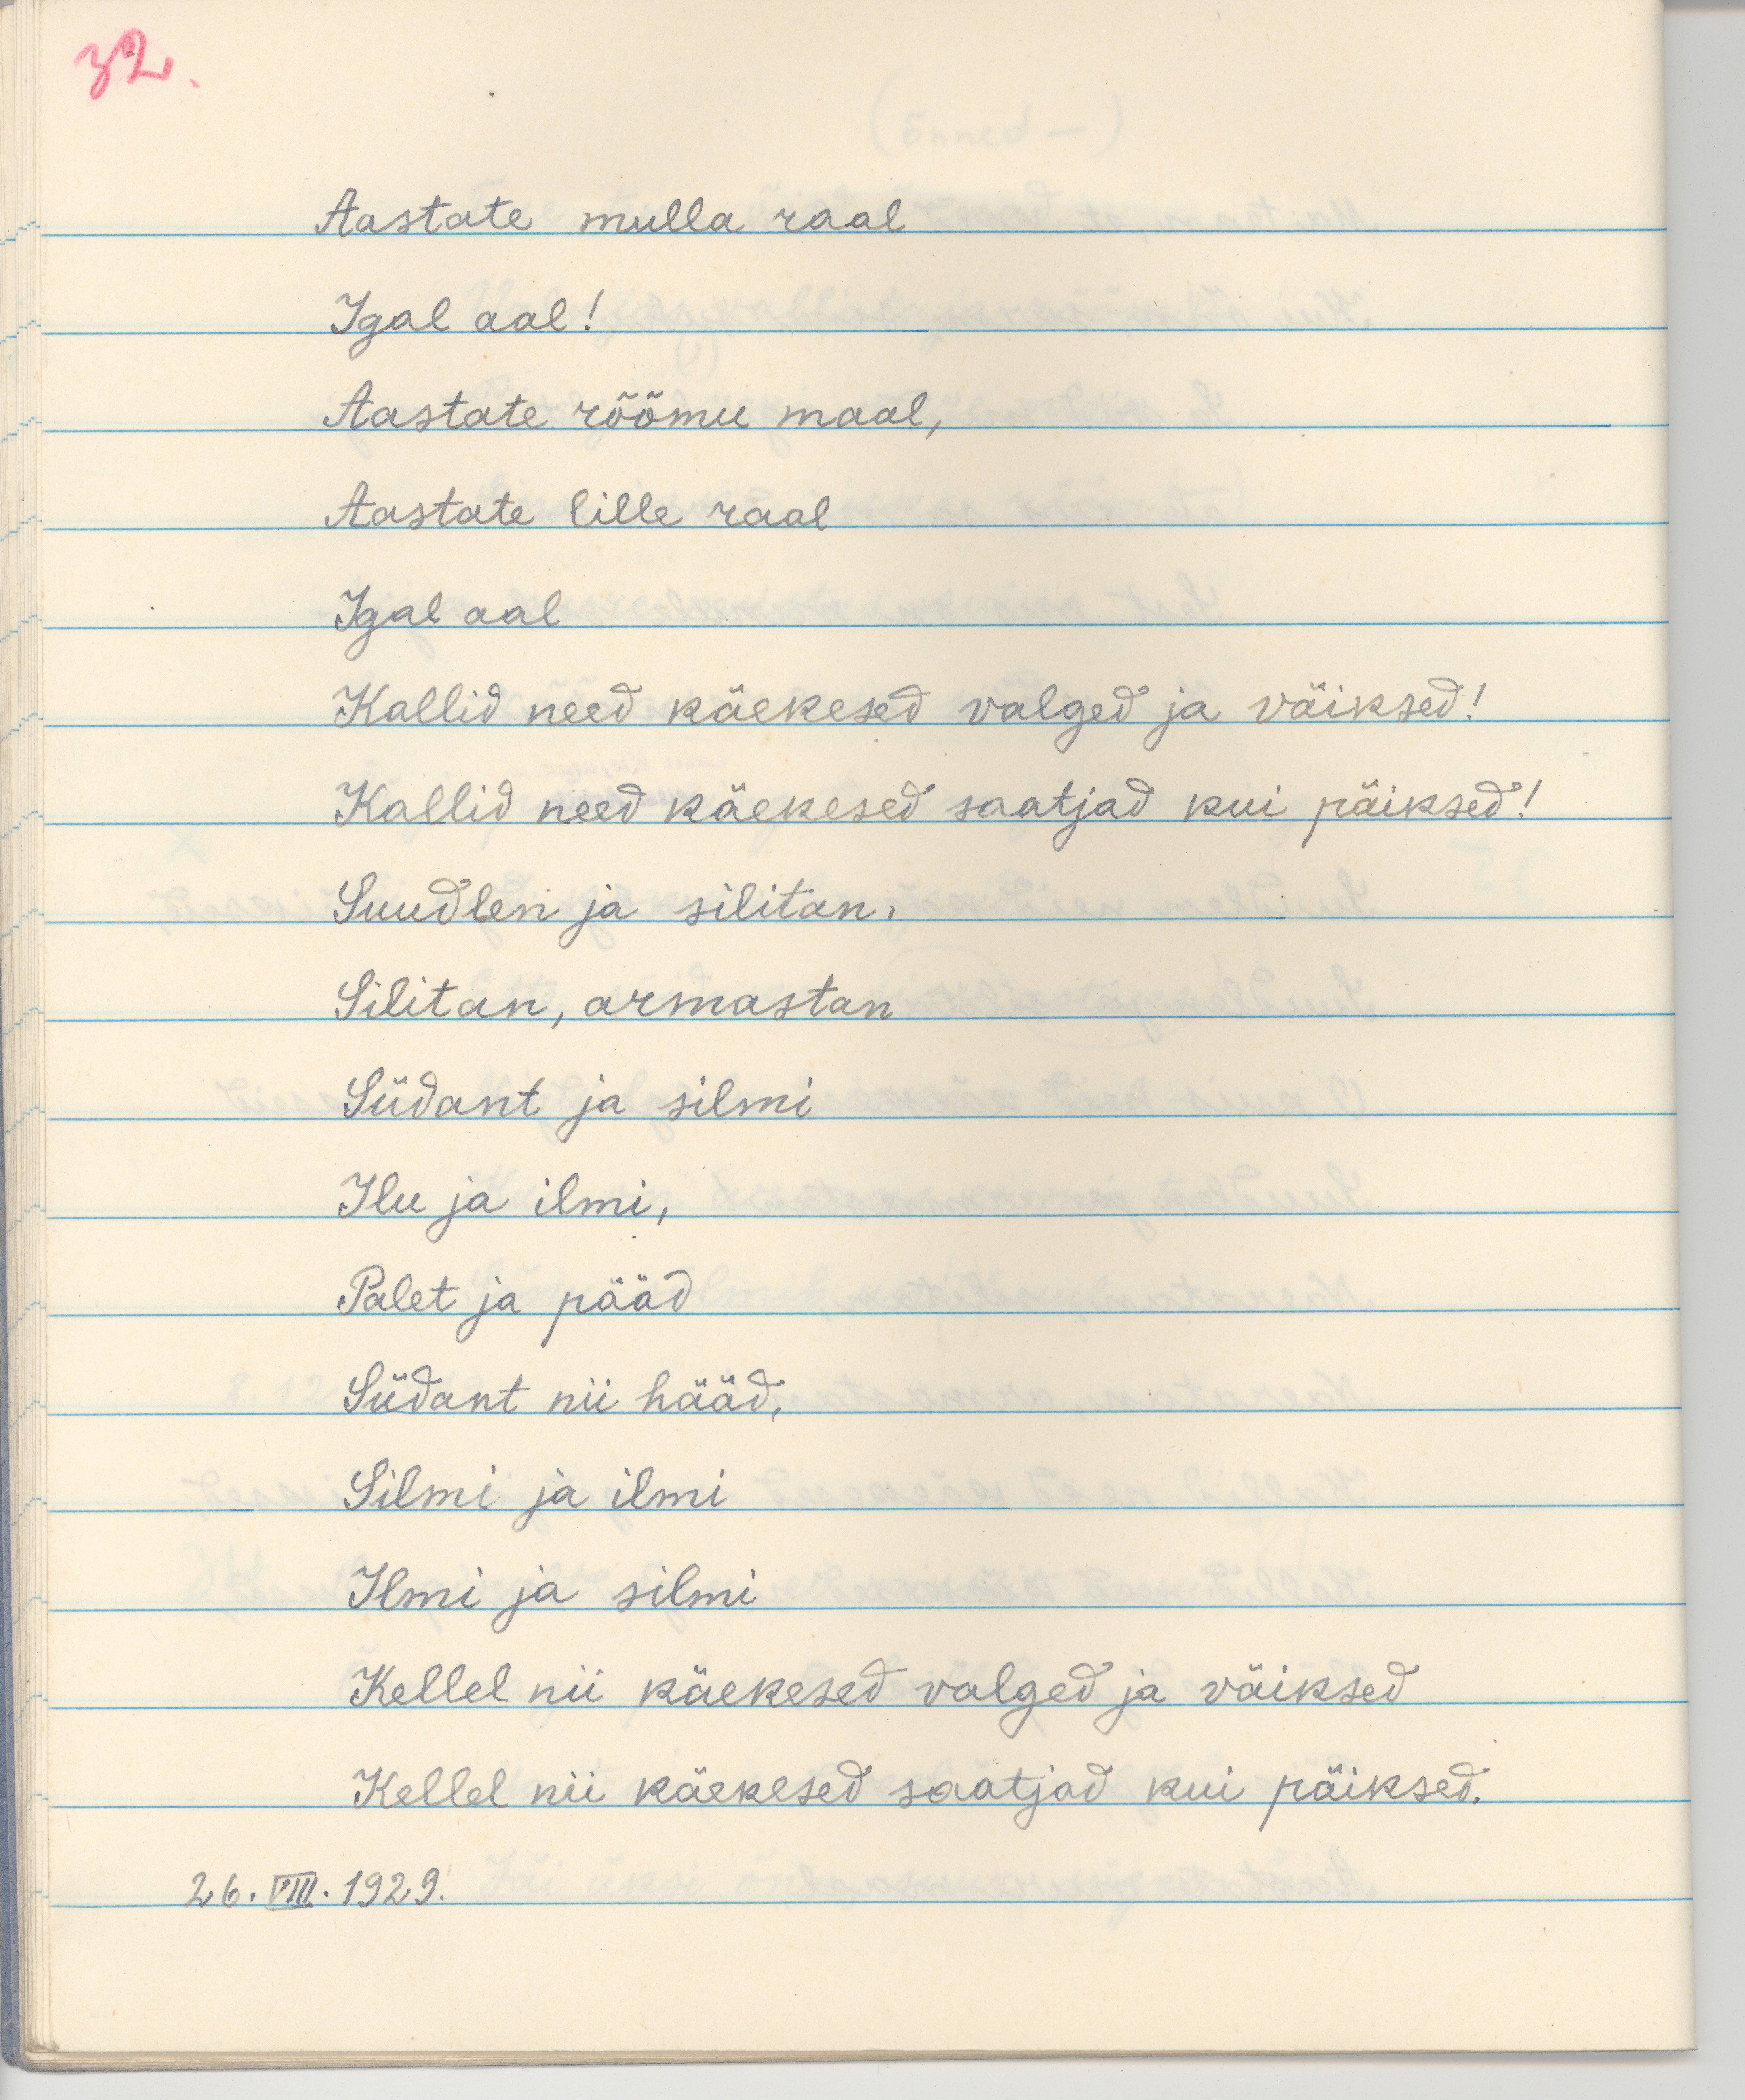 32.
Aastate mulla raal
Igal aal!
Aastate rõõmu maal,
Aastate lille raal
Igal aal
Kallid need käekesed valged ja väiksed!
Kallid need käekesed saatjad kui päiksed!
Suudlen ja silitan,
Silitan, armastan
Südant ja silmi
Ilu ja ilmi,
Palet ja pääd
Südant nii hääd,
Silmi ja ilmi
Ilmi ja silmi
Kellel nii käekesed valged ja väiksed
Kellel nii käekesed saatjad kui päiksed.
26. VIII. 1929.